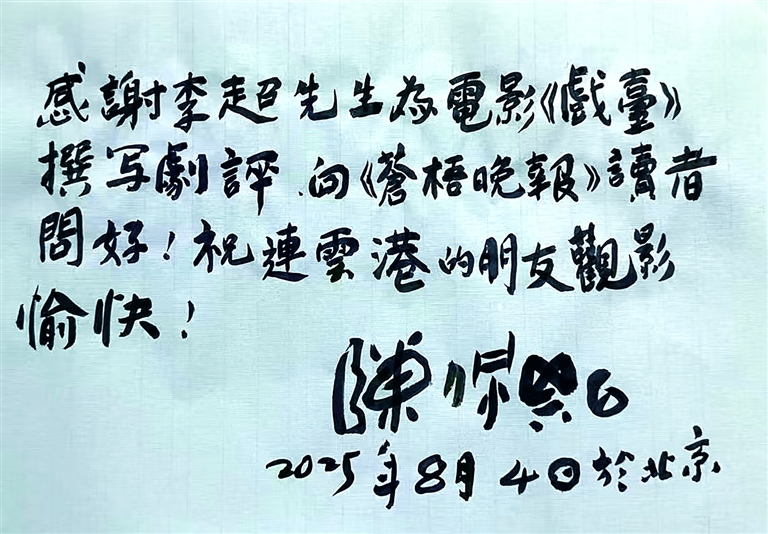 感謝李超先生為電影《戲臺》
撰写劇評.向《蒼梧晚報》讀者
問好!祝連雲港的朋友觀影
愉快!
陳佩斯
2025年8月4日於北京